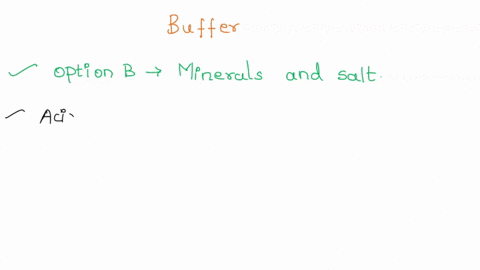 Buffer
✓ option B → Minerals and salt.
✓ Aci